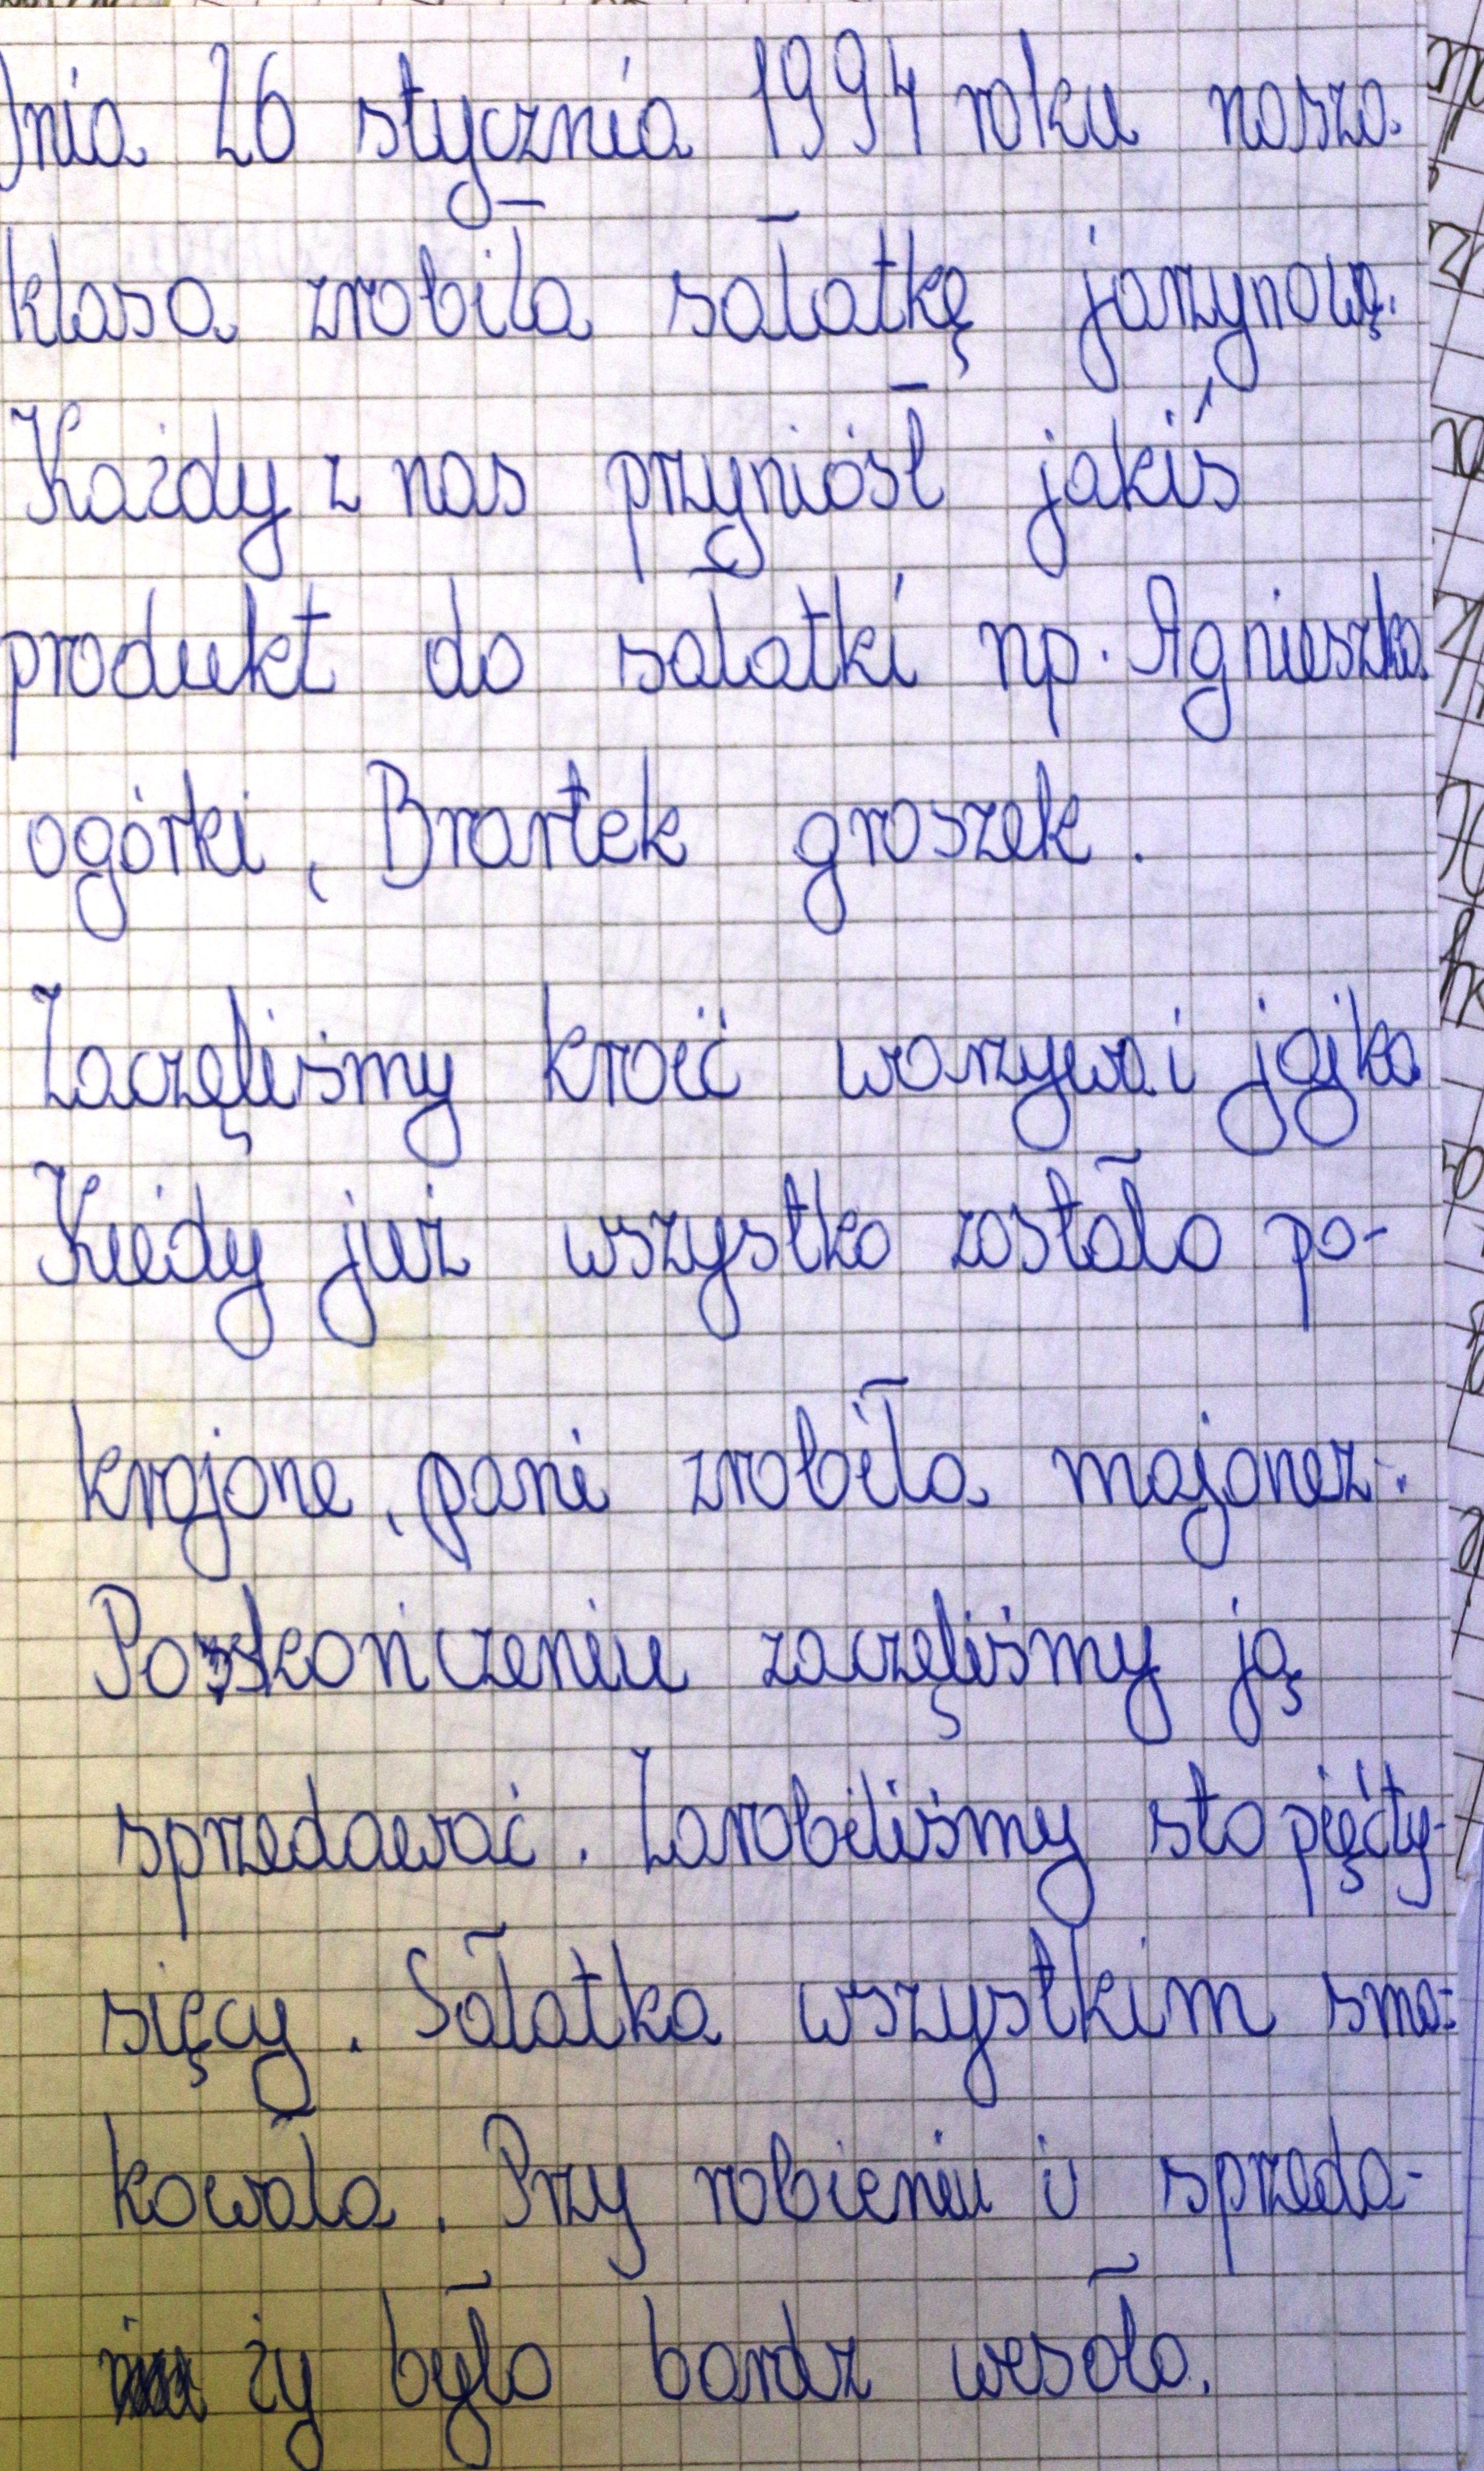 Dnia 26 stycznia 1994 roku nasza
klasa zrobiła sałatkę jarzynową.
Każdy z nas przyniósł jakiś
produkt do sałatki np. Agnieszka
ogórki, Brartek groszek.
Zaczęliśmy kroić warzywa i jajka
Kiedy już wszystko zostało po-
krojone, pani zrobiła majonez.
Po skończeniu zaczęliśmy ją
sprzedawać. Zarobiliśmy sto pięć ty-
sięcy. Sałatka wszystkim sma-
kowała. Przy robieniu i sprzeda-
ży było bardz wesoło.